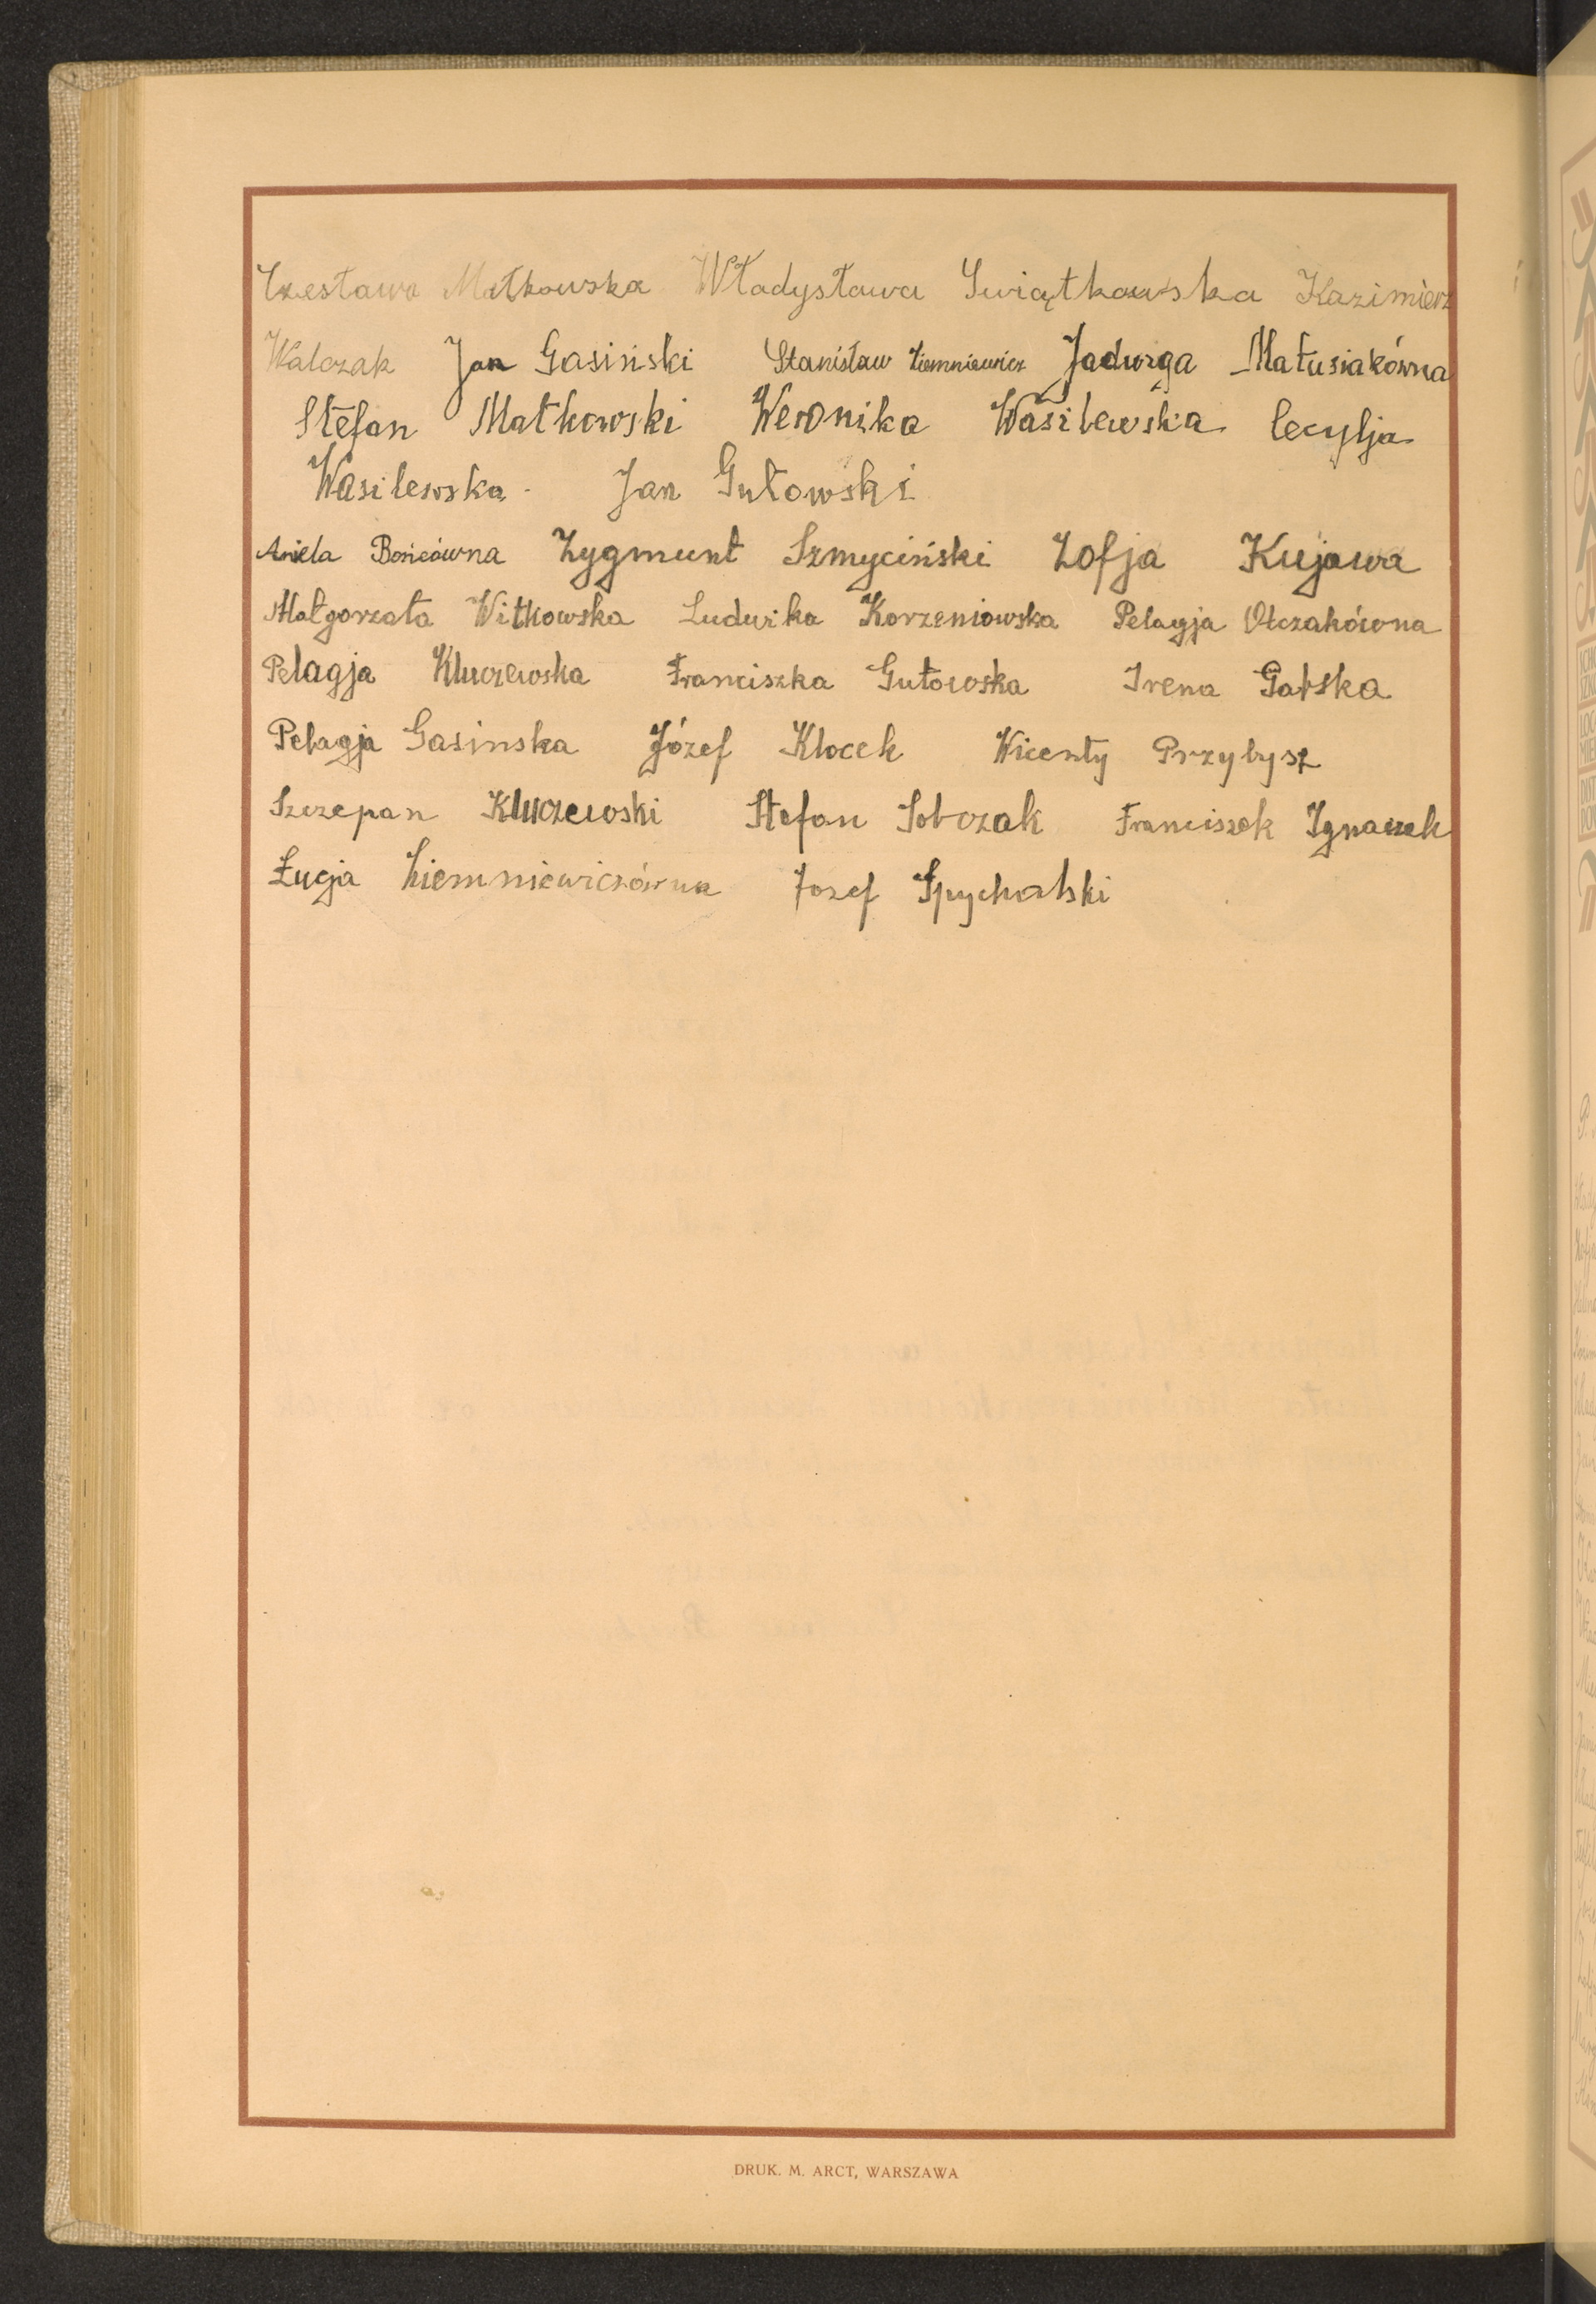 Czesława Matkowska Władysława Swiątkowska Kazimierz
Walczak Jan Gasiński Stanisław Ziemniewicz Jadwiga Matusiakówna
Stefan Matkowski Weronika Wasilewska Cecylja
Wasilewska. Jan Gutowski
Aniela Zygmunt Szmyciński Zofja Kujawa
Małgorzata Witkowska Ludwika Korzeniowska Pelagja Olczakówna
Pelagja Kluczewska Franciszka Gutowska Irena Gabska
Pelagja Gasinska Józef Klocek Wicenty Przybysz
Szczepan Kluczewski Stefan Sobczak Franciszek Ignaczek
Łucja Ziemniewiczówna Jozef Spychalski
DRUK. M. ARCT, WARSZAWA